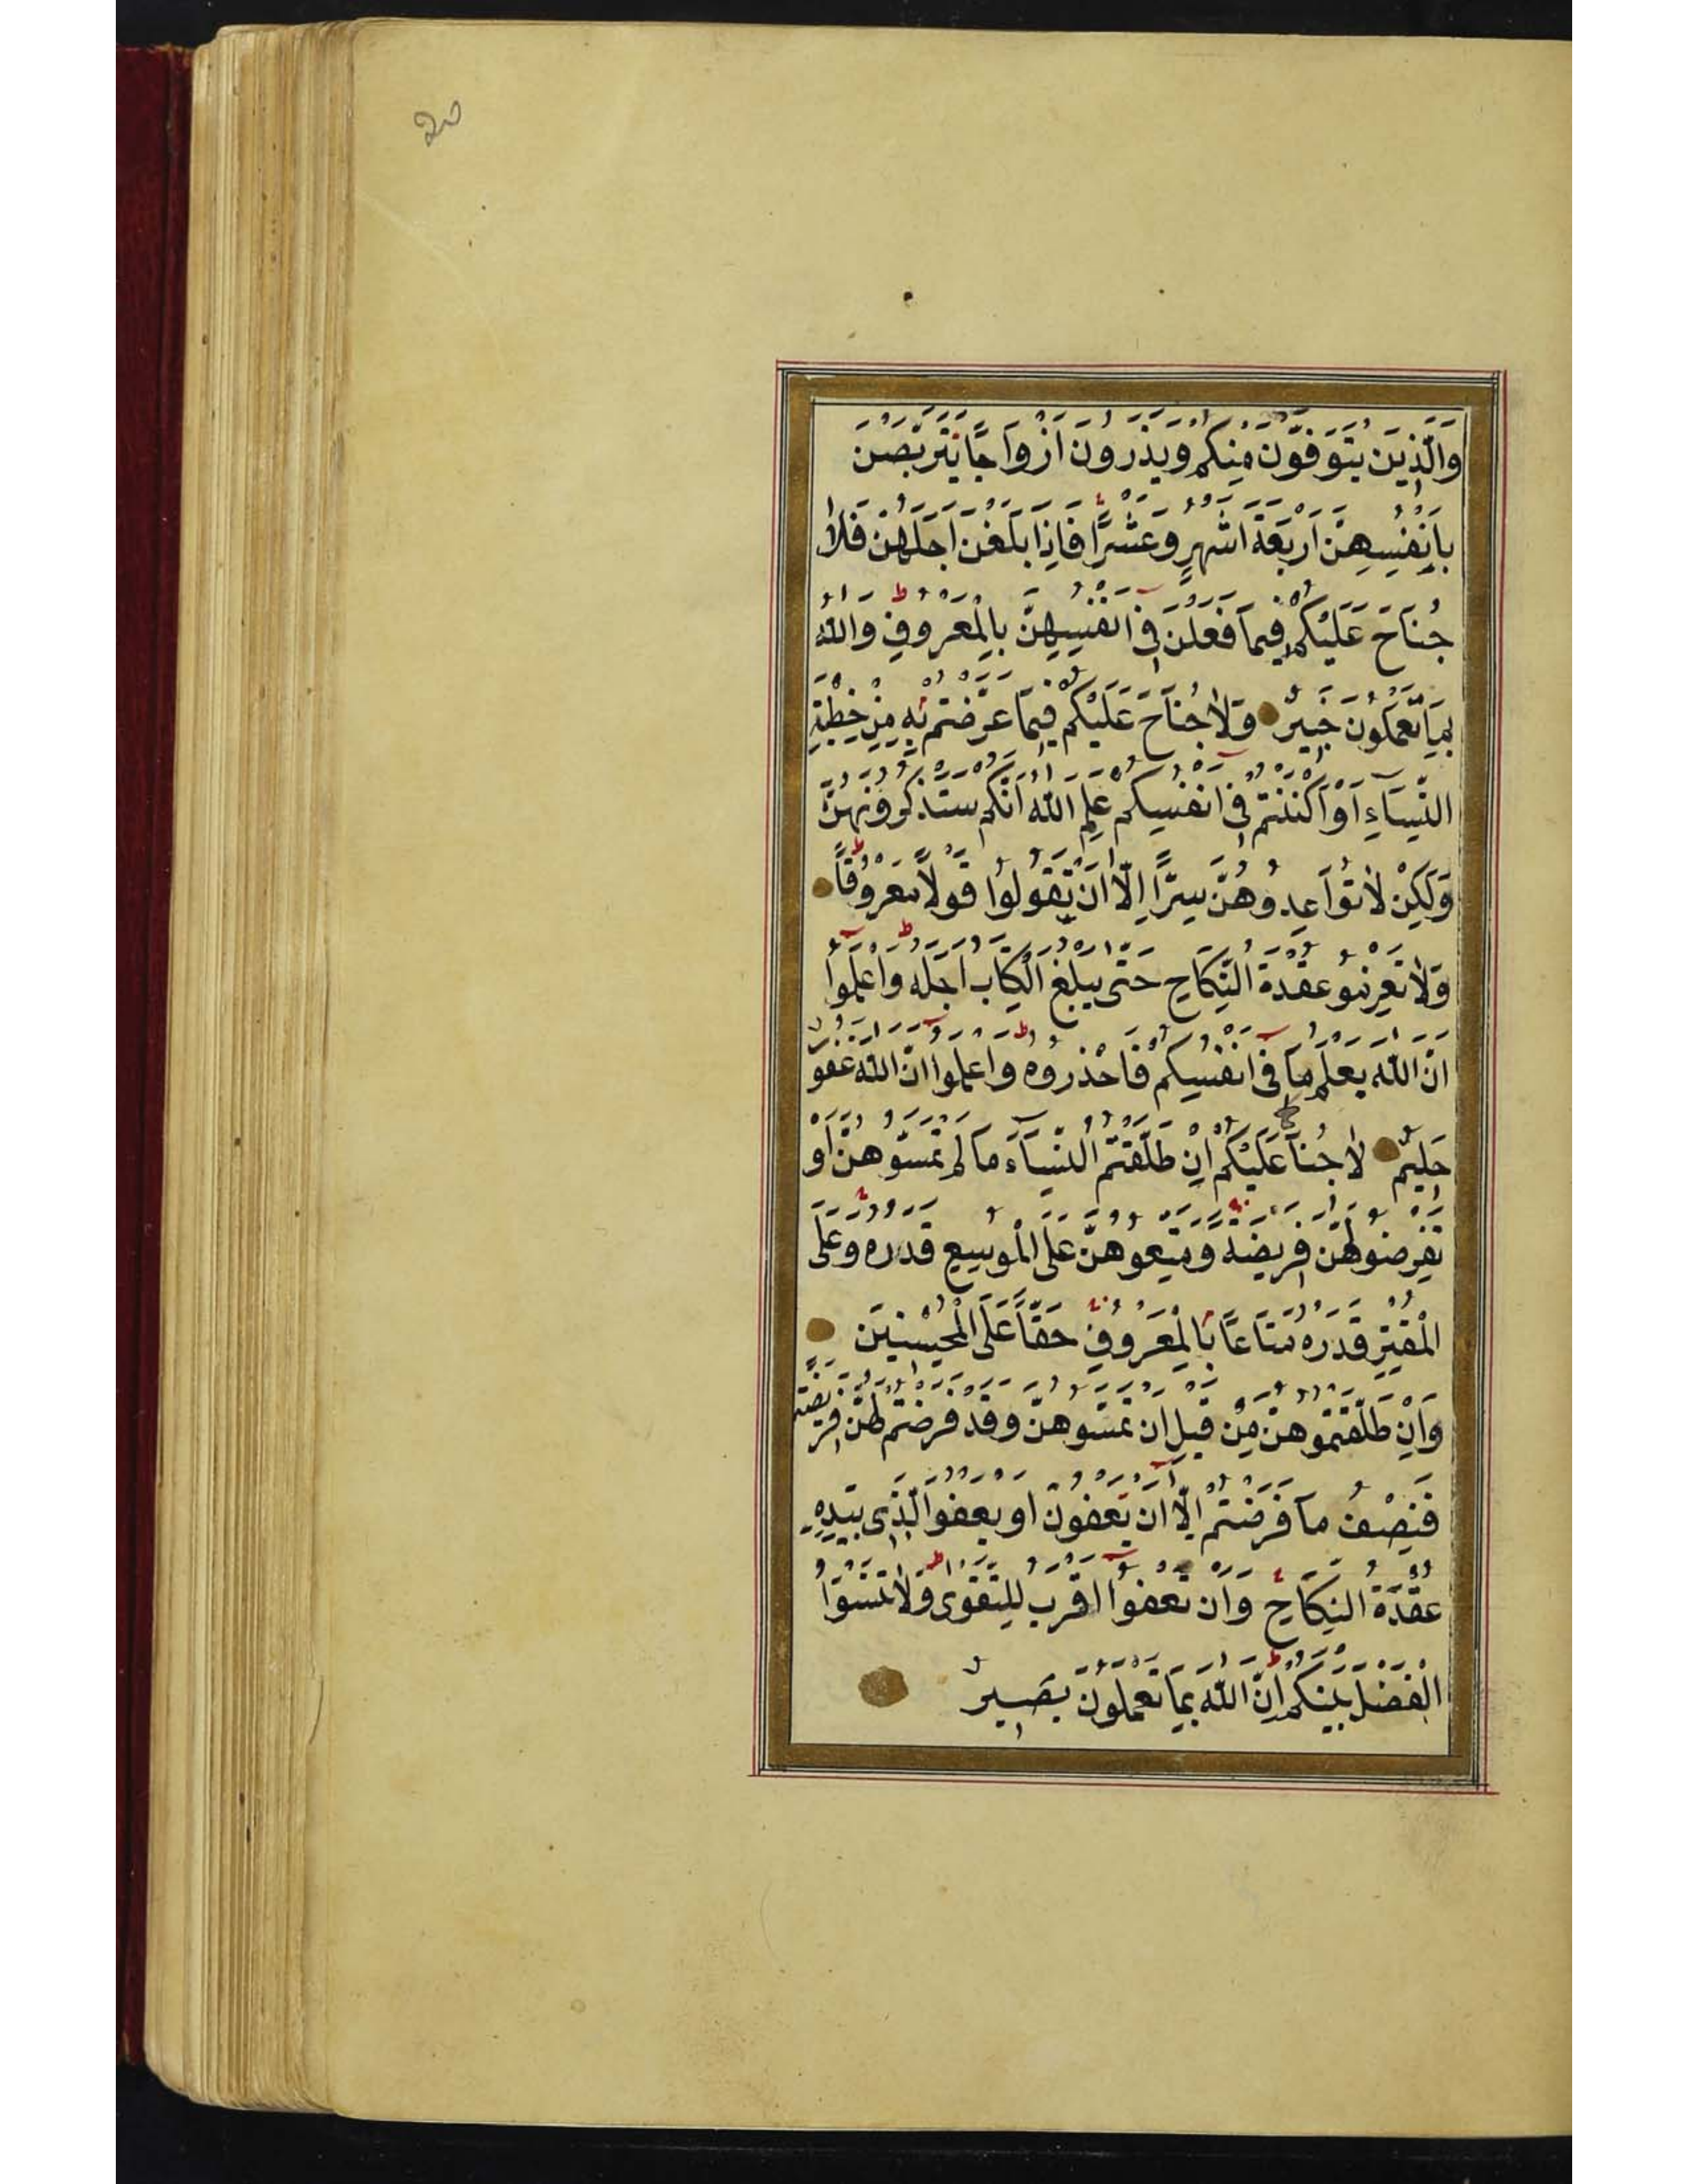 وَالَّذِينَ يُتَوَفَّوْنَ مِنْكُمْ وَيَذَرُونَ اَزْوَاجًا يَتَرَبَّصْنَ
بِاَنْفُسِهِنَّ اَرْبَعَةَ اَشْهُرٍ وَعَشْرًا فَاِذَا بَلَغْنَ اَجَلَهُنَّ فَلَا
جُنَاحَ عَلَيْكُمْ فِيمَا فَعَلْنَ فِى اَنْفُسِهِنَّ بِالْمَعْرُوفِ وَاللّٰهُ
بِمَا تَعْمَلُونَ خَبِيرٌ وَلَا جُنَاحَ عَلَيْكُمْ فِيمَا عَرَّضْتُمْ بِهِ مِنْ خِطْبَةِ
النِّسَاءِ اَوْ اَكْنَنْتُمْ فِى اَنْفُسِكُمْ عَلِمَ اللّٰهُ اَنَّكُمْ سَتَذْكُرُونَهُنَّ
وَلٰكِنْ لَا تُوَاعِدُوهُنَّ سِرًّا اِلَّا اَنْ تَقُولُوا قَوْلًا مَعْرُوفًا
وَلَا تَعْزِمُو عُقْدَةَ النِّكَاحِ حَتّٰى يَبْلُغَ الْكِتَابُ اَجَلَهُ وَاعْلَمُوا
اَنَّ اللّٰهَ يَعْلَمُ مَا فِى اَنْفُسِكُمْ فَاحْذَرُوهُ وَاعْلَمُوا اَنَّ اللّٰهَ غَفُورٌ
حَلِيمٌ لَا جُنَاحَ عَلَيْكُمْ اِنْ طَلَّقْتُمُ النِّسَاءَ مَا لَمْ تَمَسُّوهُنَّ اَوْ
تَفْرِضُوا لَهُنَّ فَرِيضَةً وَمَتِّعُوهُنَّ عَلَى الْمُوسِعِ قَدَرُهُ وَعَلَى
الْمُقْتِرِ قَدَرُهُ مَتَاعًا بِالْمَعْرُوفِ حَقًّا عَلَى الْمُحْسِنِينَ
وَاِنْ طَلَّقْتُمُوهُنَّ مِنْ قَبْلِ اَنْ تَمَسُّوهُنَّ وَقَدْ فَرَضْتُمْ لَهُنَّ فَرِيضَةً
فَنِصْفُ مَا فَرَضْتُمْ اِلَّا اَنْ يَعْفُونَ اَوْ يَعْفُوَ الَّذِى بِيَدِهِ
عُقْدَةُ النِّكَاحِ وَاَنْ تَعْفُوا اَقْرَبُ لِلتَّقْوٰى وَلَا تَنْسَوُا
الْفَضْلَ بَيْنَكُمْ اِنَّ اللّٰهَ بِمَا تَعْمَلُونَ بَصِيرٌ